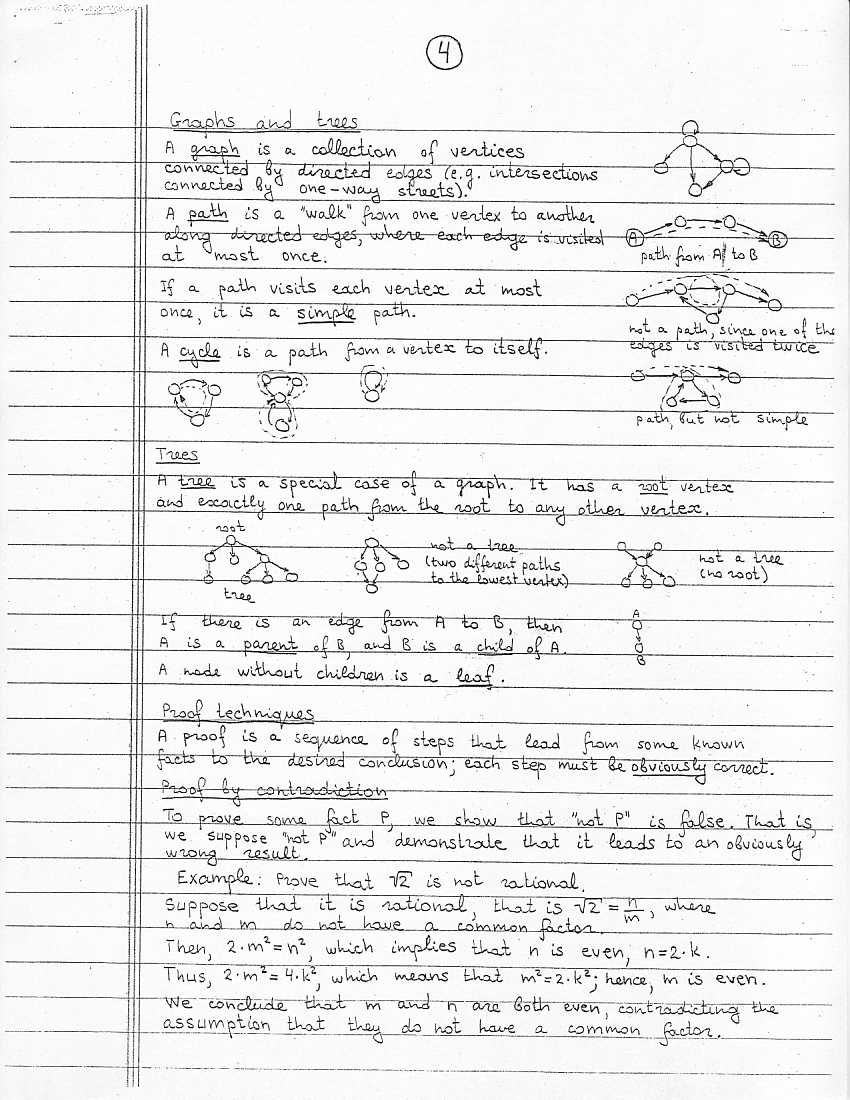 4
Graphs and trees
A graph is a collection of vertices
connected by directed edges (e.g. intersections
connected by one-way streets).
A path is a "walk" from one vertex to another
along directed edges, where each edge is visited
at most once.
A B
path from A to B
If a path visits each vertex at most
once, it is a simple path.
not a path, since one of the
edges is visited twice
A cycle is a path from a vertex to itself.
path, but not simple
Trees
A tree is a special case of a graph. It has a root vertex
and exactly one path from the root to any other vertex.
root
tree
not a tree
(two different paths
to the lowest vertex)
not a tree
(no root)
If there is an edge from A to B, then
A is a parent of B, and B is a child of A.
A
B
A node without children is a leaf.
Proof techniques
A proof is a sequence of steps that lead from some known
facts to the desired conclusion; each step must be obviously correct.
Proof by contradiction
To prove some fact P, we show that "not P" is false. That is,
we suppose "not P" and demonstrate that it leads to an obviously
wrong result.
Example: Prove that √2 is not rational.
Suppose that it is rational, that is √2 = n/m, where
n and m do not have a common factor.
Then, 2·m²=n², which implies that n is even, n=2·k.
Thus, 2·m²=4·k², which means that m²=2·k²; hence, m is even.
We conclude that m and n are both even, contradicting the
assumption that they do not have a common factor.